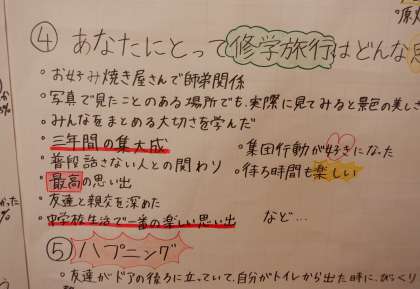 ④ あなたにとって修学旅行はどんな思
・お好み焼き屋さんで師弟関係
・写真で見たことのある場所でも、実際に見てみると景色の美しさ
・みんなをまとめる大切さを学んだ
・三年間の集大成
・普段話さない人との関わり
・最高の思い出
・友達と親交を深めた
・中学校生活で一番の楽しい思い出
・集団行動が好きになった
・待ち時間も楽しい
など…
⑤ ハプニング
・友達がドアの後ろに立っていて、自分がトイレから出た時に、びっくり